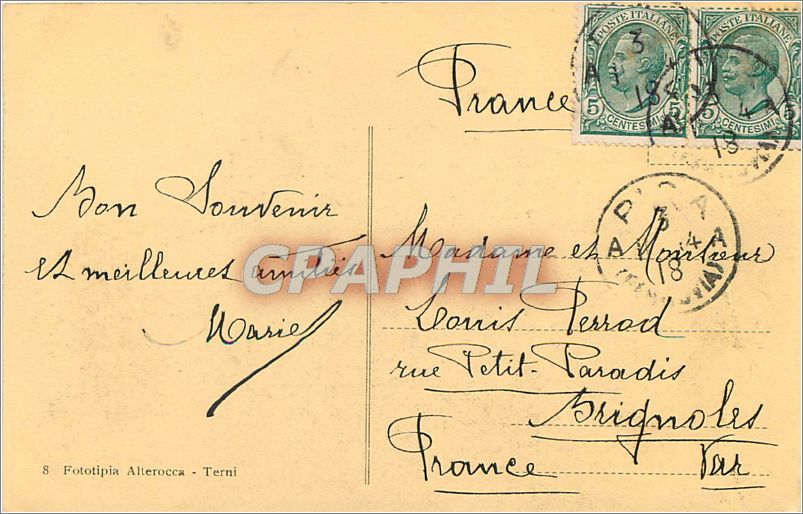 France
POSTE ITALIANE
5 5
CENTESIMI
POSTE ITALIANE
5 5
CENTESIMI
3
18
4
18
PISA
3
4
A A
18
(FERROVIA)
Bon Souvenir
et meilleures amitiés
Marie
Madame et Monsieur
Louis Perrod
rue Petit-Paradis
Brignoles
France Var
CPAPHIL
8 Fototipia Alterocca - Terni